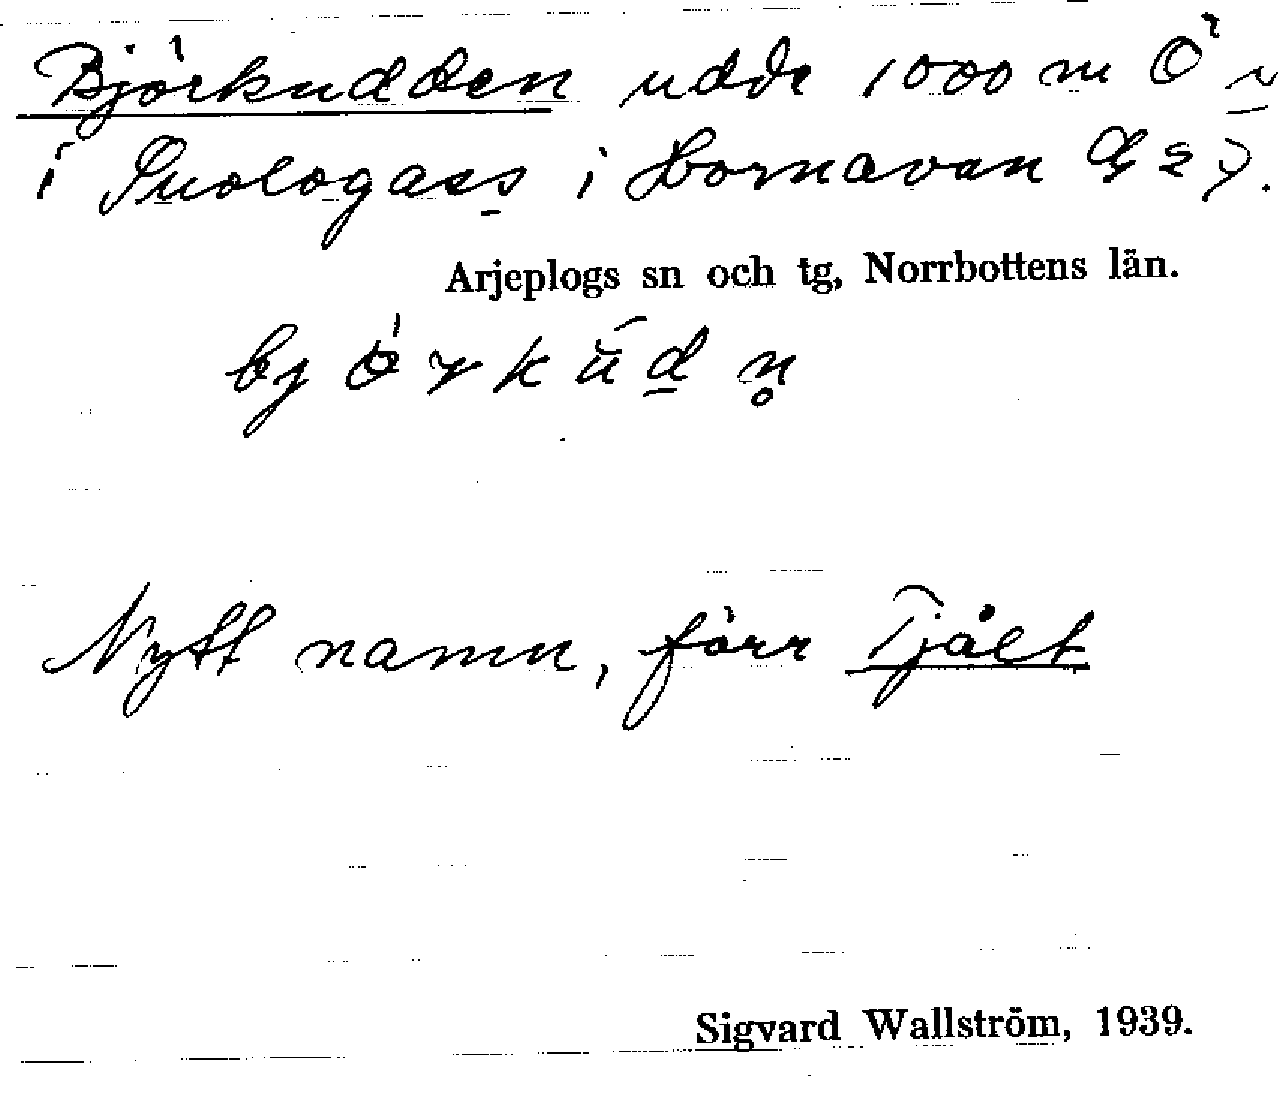 Björkudden udde 1000 m Ö n
i Suologass i Hornavan G 27.
Arjeplogs sn och tg, Norrbottens län.
björkúdn̥
Nytt namn, förr Tjålt
Sigvard Wallström, 1939.